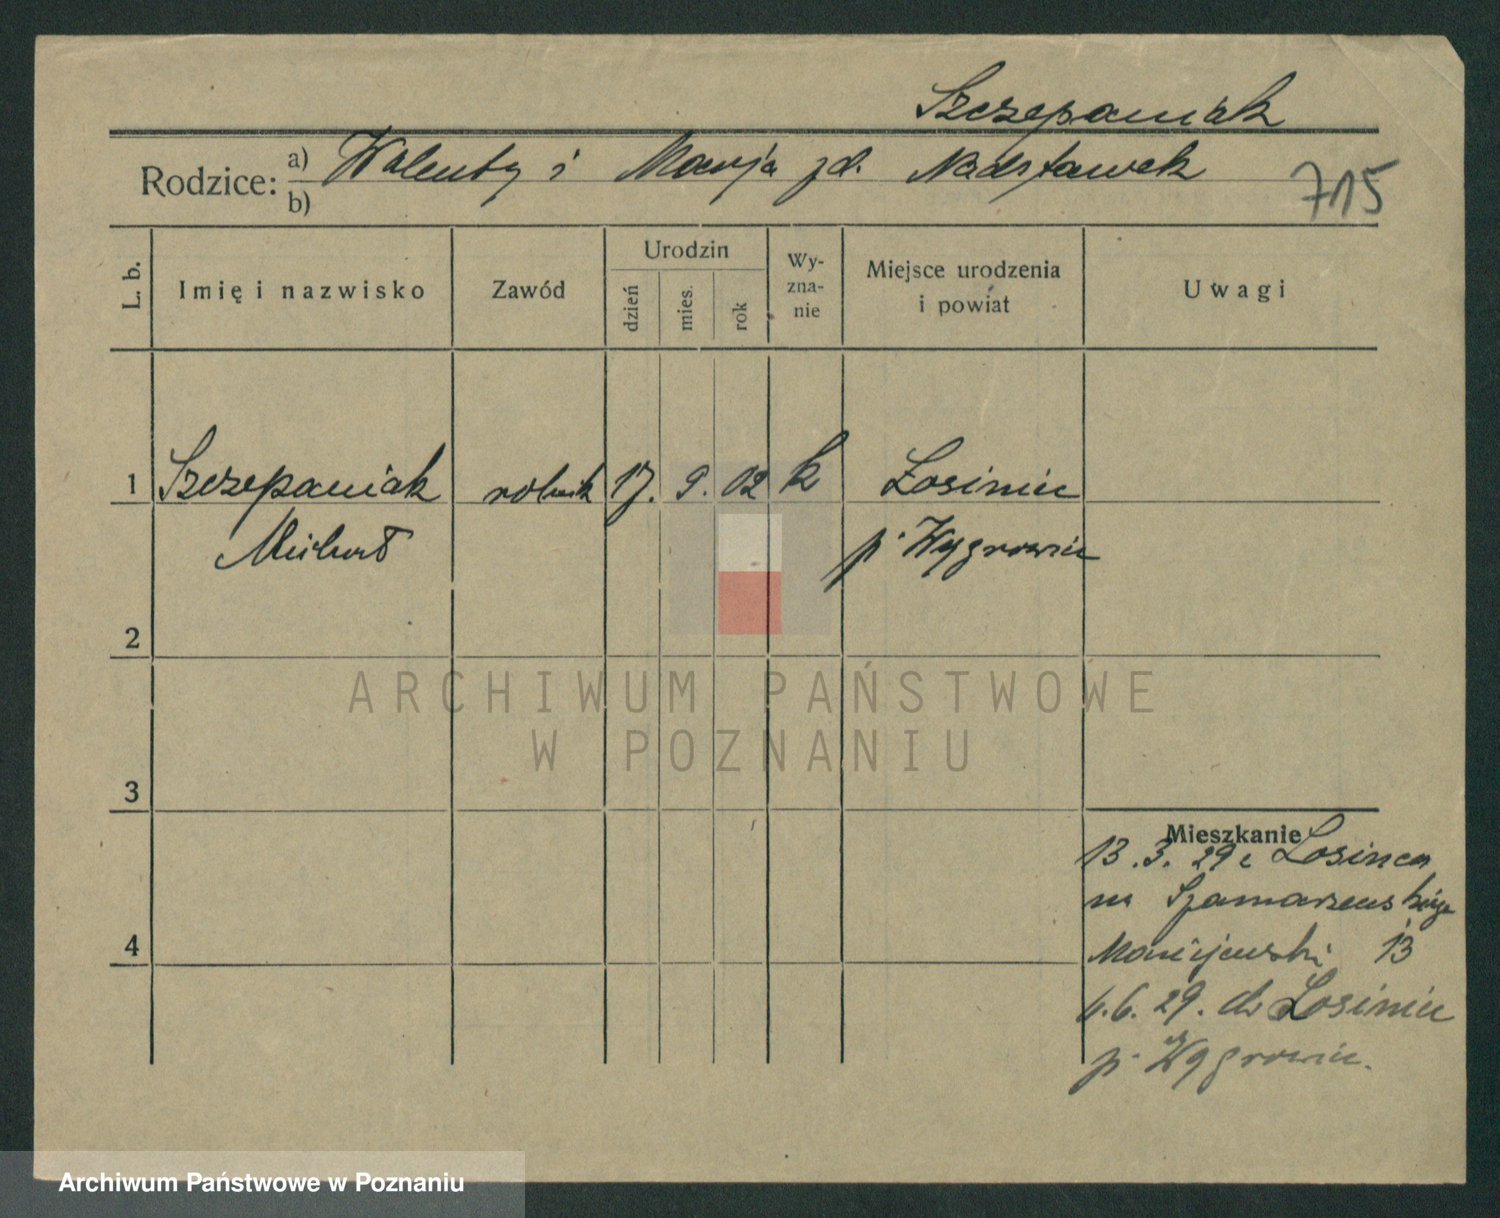 Szczepaniak
Rodzice: a) Walenty i Marja zd. Nadstawek
b)
715
L. b.
Imię i nazwisko
Zawód
Urodzin
dzień
mies.
rok
Wy-
zna-
nie
Miejsce urodzenia
i powiat
Uwagi
1 Szczepaniak rolnik 17. 9. 02 k Łosiniec
Michał p. Wągrowiec
2
3
4
Mieszkanie
13.3.29 z Łosińca
na Szamarzewskiego
13
6.6.29. do Łosiniec
p. Wągrowiec.
ARCHIWUM PAŃSTWOWE
W POZNANIU
Archiwum Państwowe w Poznaniu